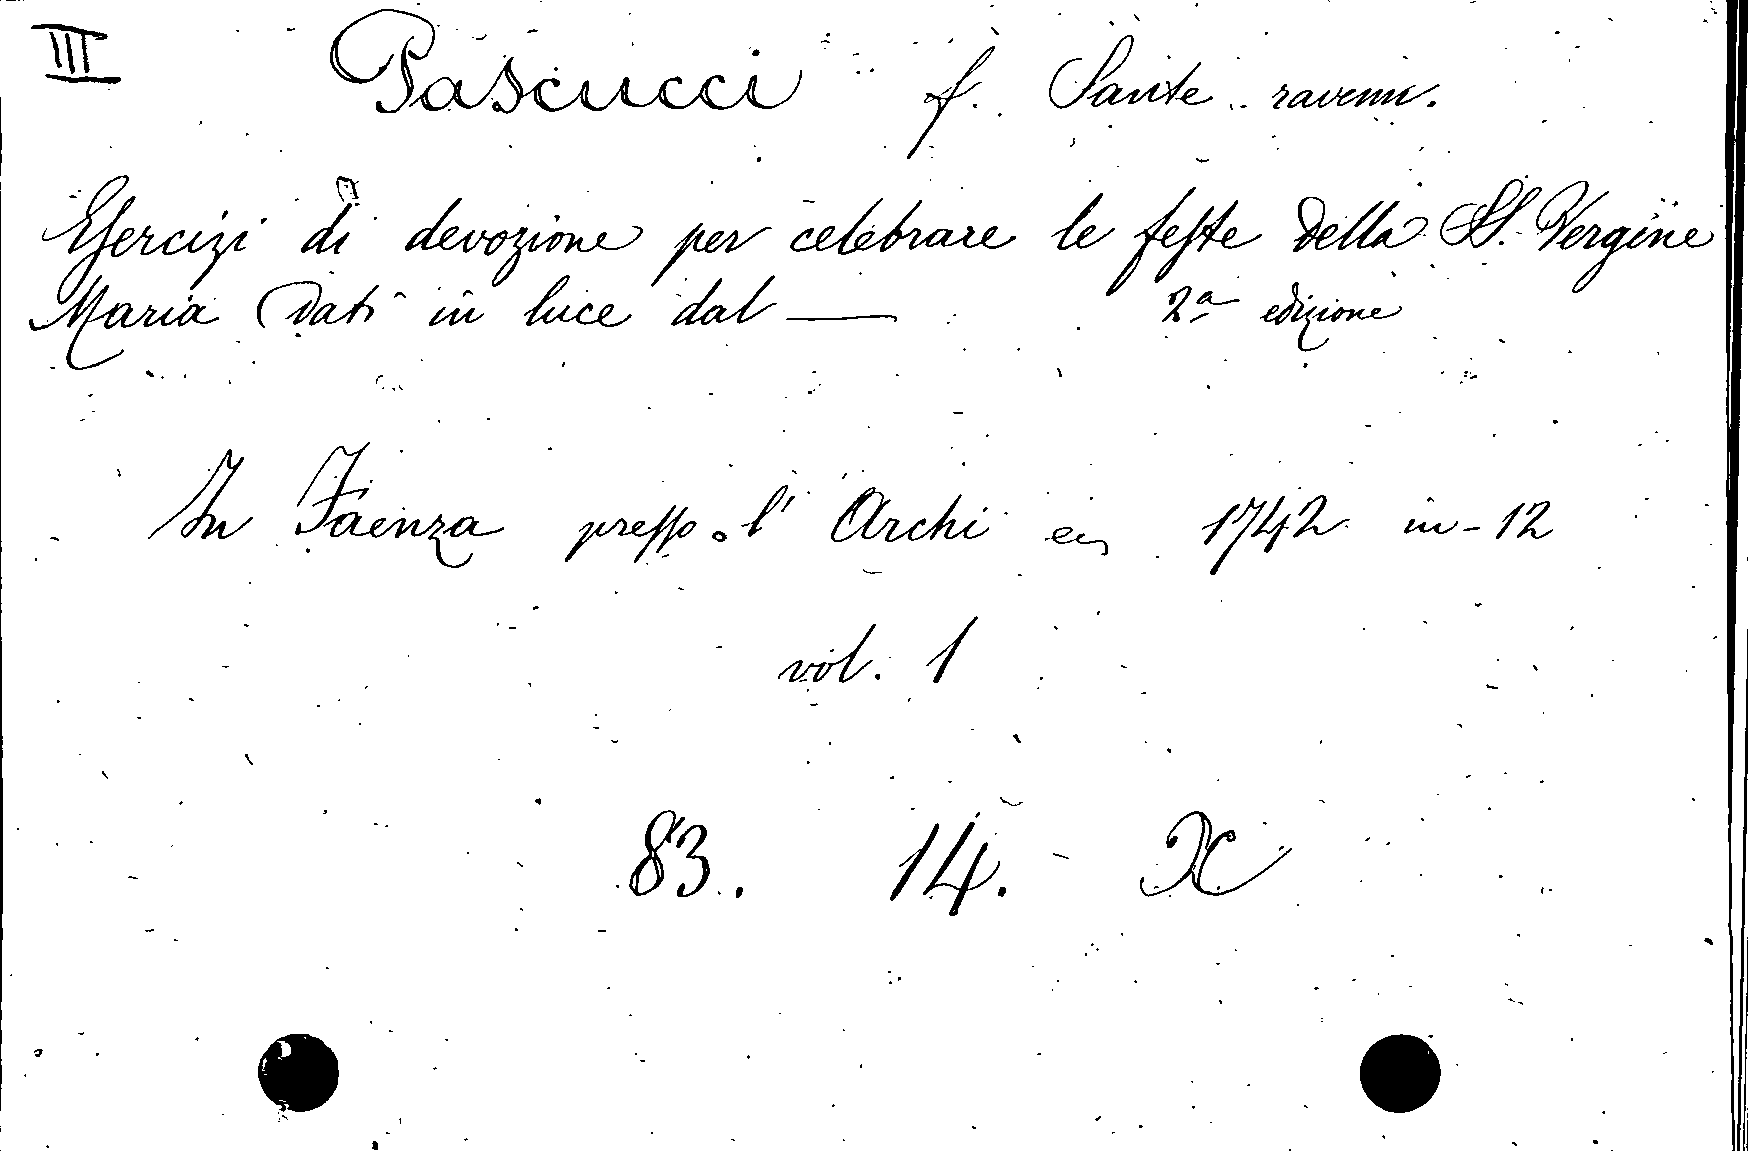 III Pascucci f. Sante ravenn.
Esercizi di devozione per celebrare le feste della SS. Vergine
Maria dati in luce dal — 2ª edizione
In Faenza presso l' Archi 1742 in-12
vol. 1
83. 14. X